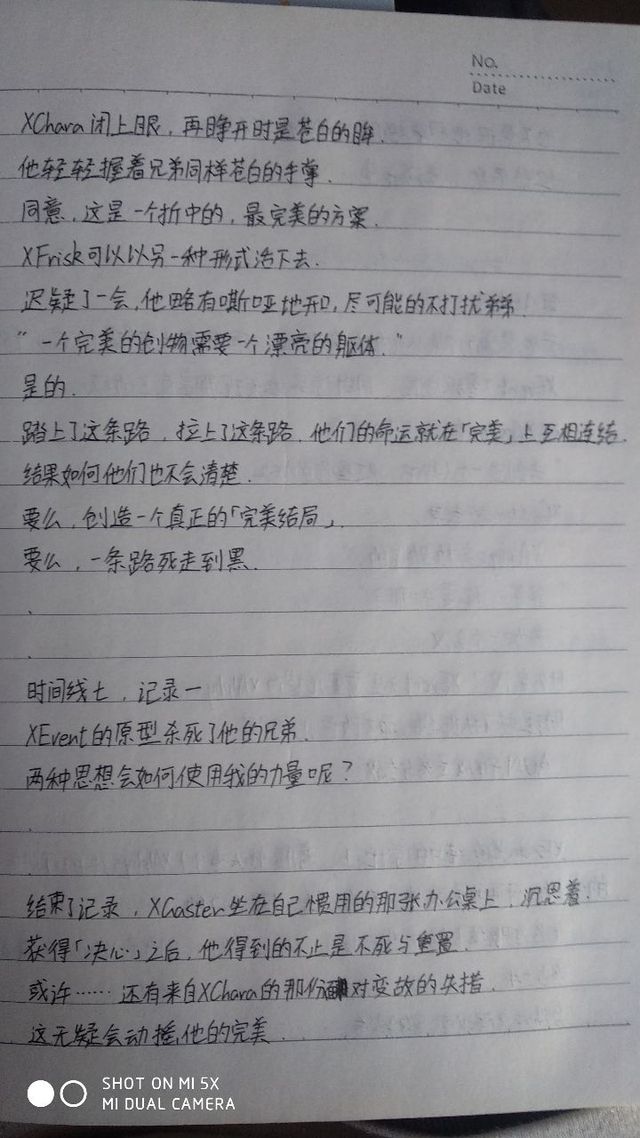 No.
Date
XChara闭上眼，再睁开时是苍白的眸.
他轻轻握着兄弟同样苍白的手掌.
同意，这是一个折中的，最完美的方案.
XFrisk可以以另一种形式活下去.
迟疑了一会，他略有嘶哑地开口，尽可能的不打扰弟弟.
"一个完美的创物需要一个漂亮的躯体."
是的.
踏上了这条路，拉上了这条路，他们的命运就在「完美」上互相连结.
结果如何他们也不会清楚.
要么，创造一个真正的「完美结局」.
要么，一条路死走到黑.
.
.
时间线七，记录一
XEvent的原型杀死了他的兄弟.
两种思想会如何使用我的力量呢？
.
结束了记录，XGaster坐在自己惯用的那张办公桌上，沉思着.
获得「决心」之后，他得到的不止是不死与重置.
或许……还有来自XChara的那份对变故的失措.
这无疑会动摇他的完美.
SHOT ON MI 5X
MI DUAL CAMERA